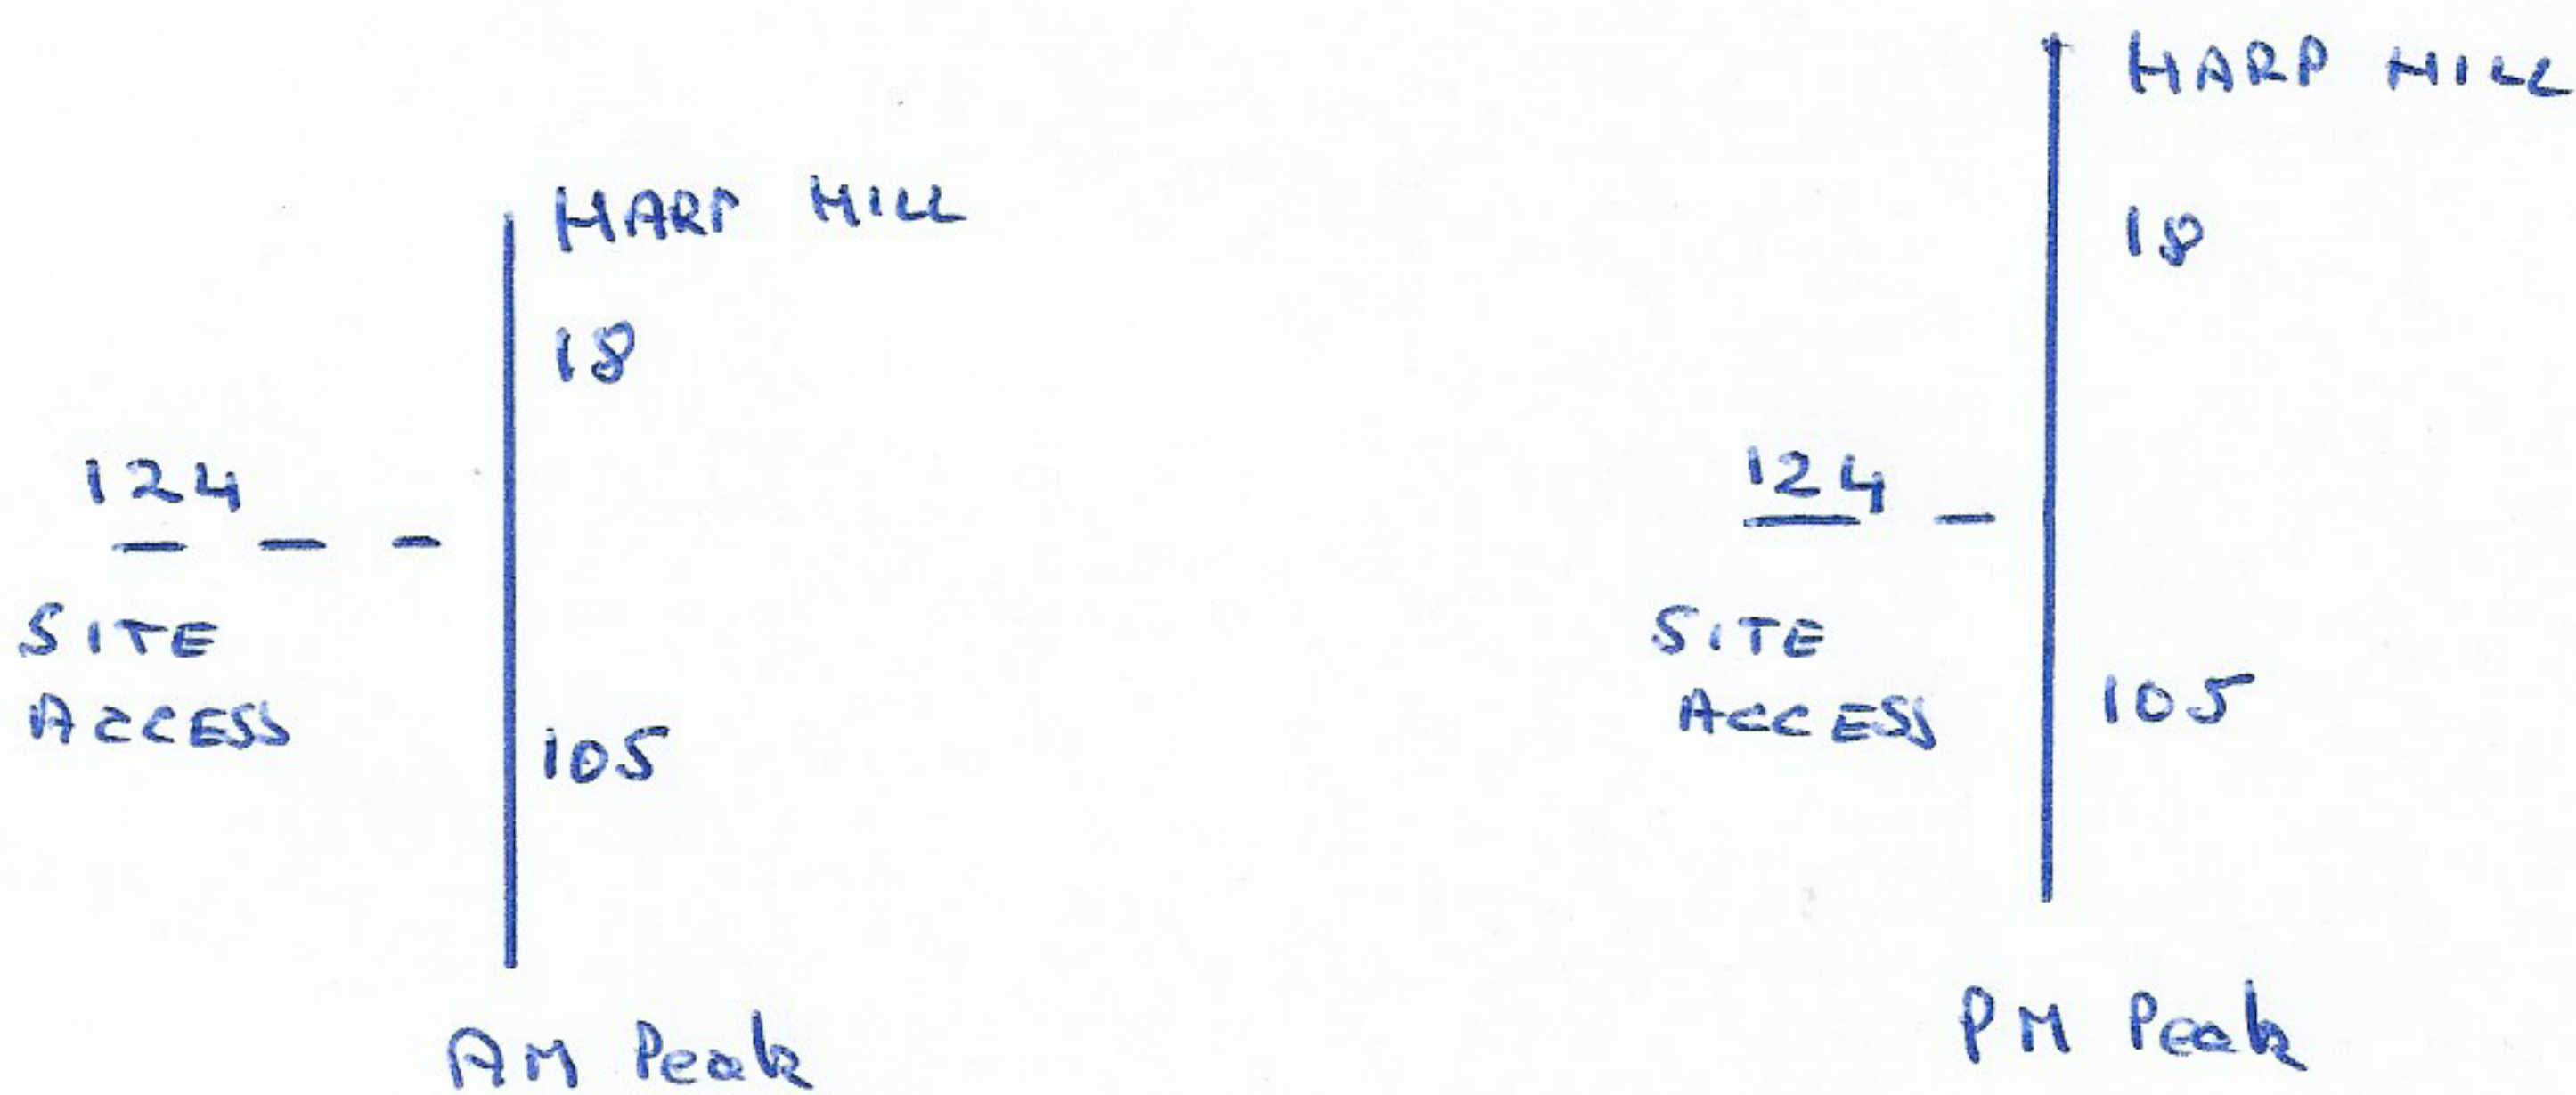 HARP HILL
18
124
SITE
ACCESS
105
AM Peak
HARP HILL
18
124
SITE
ACCESS
105
PM Peak